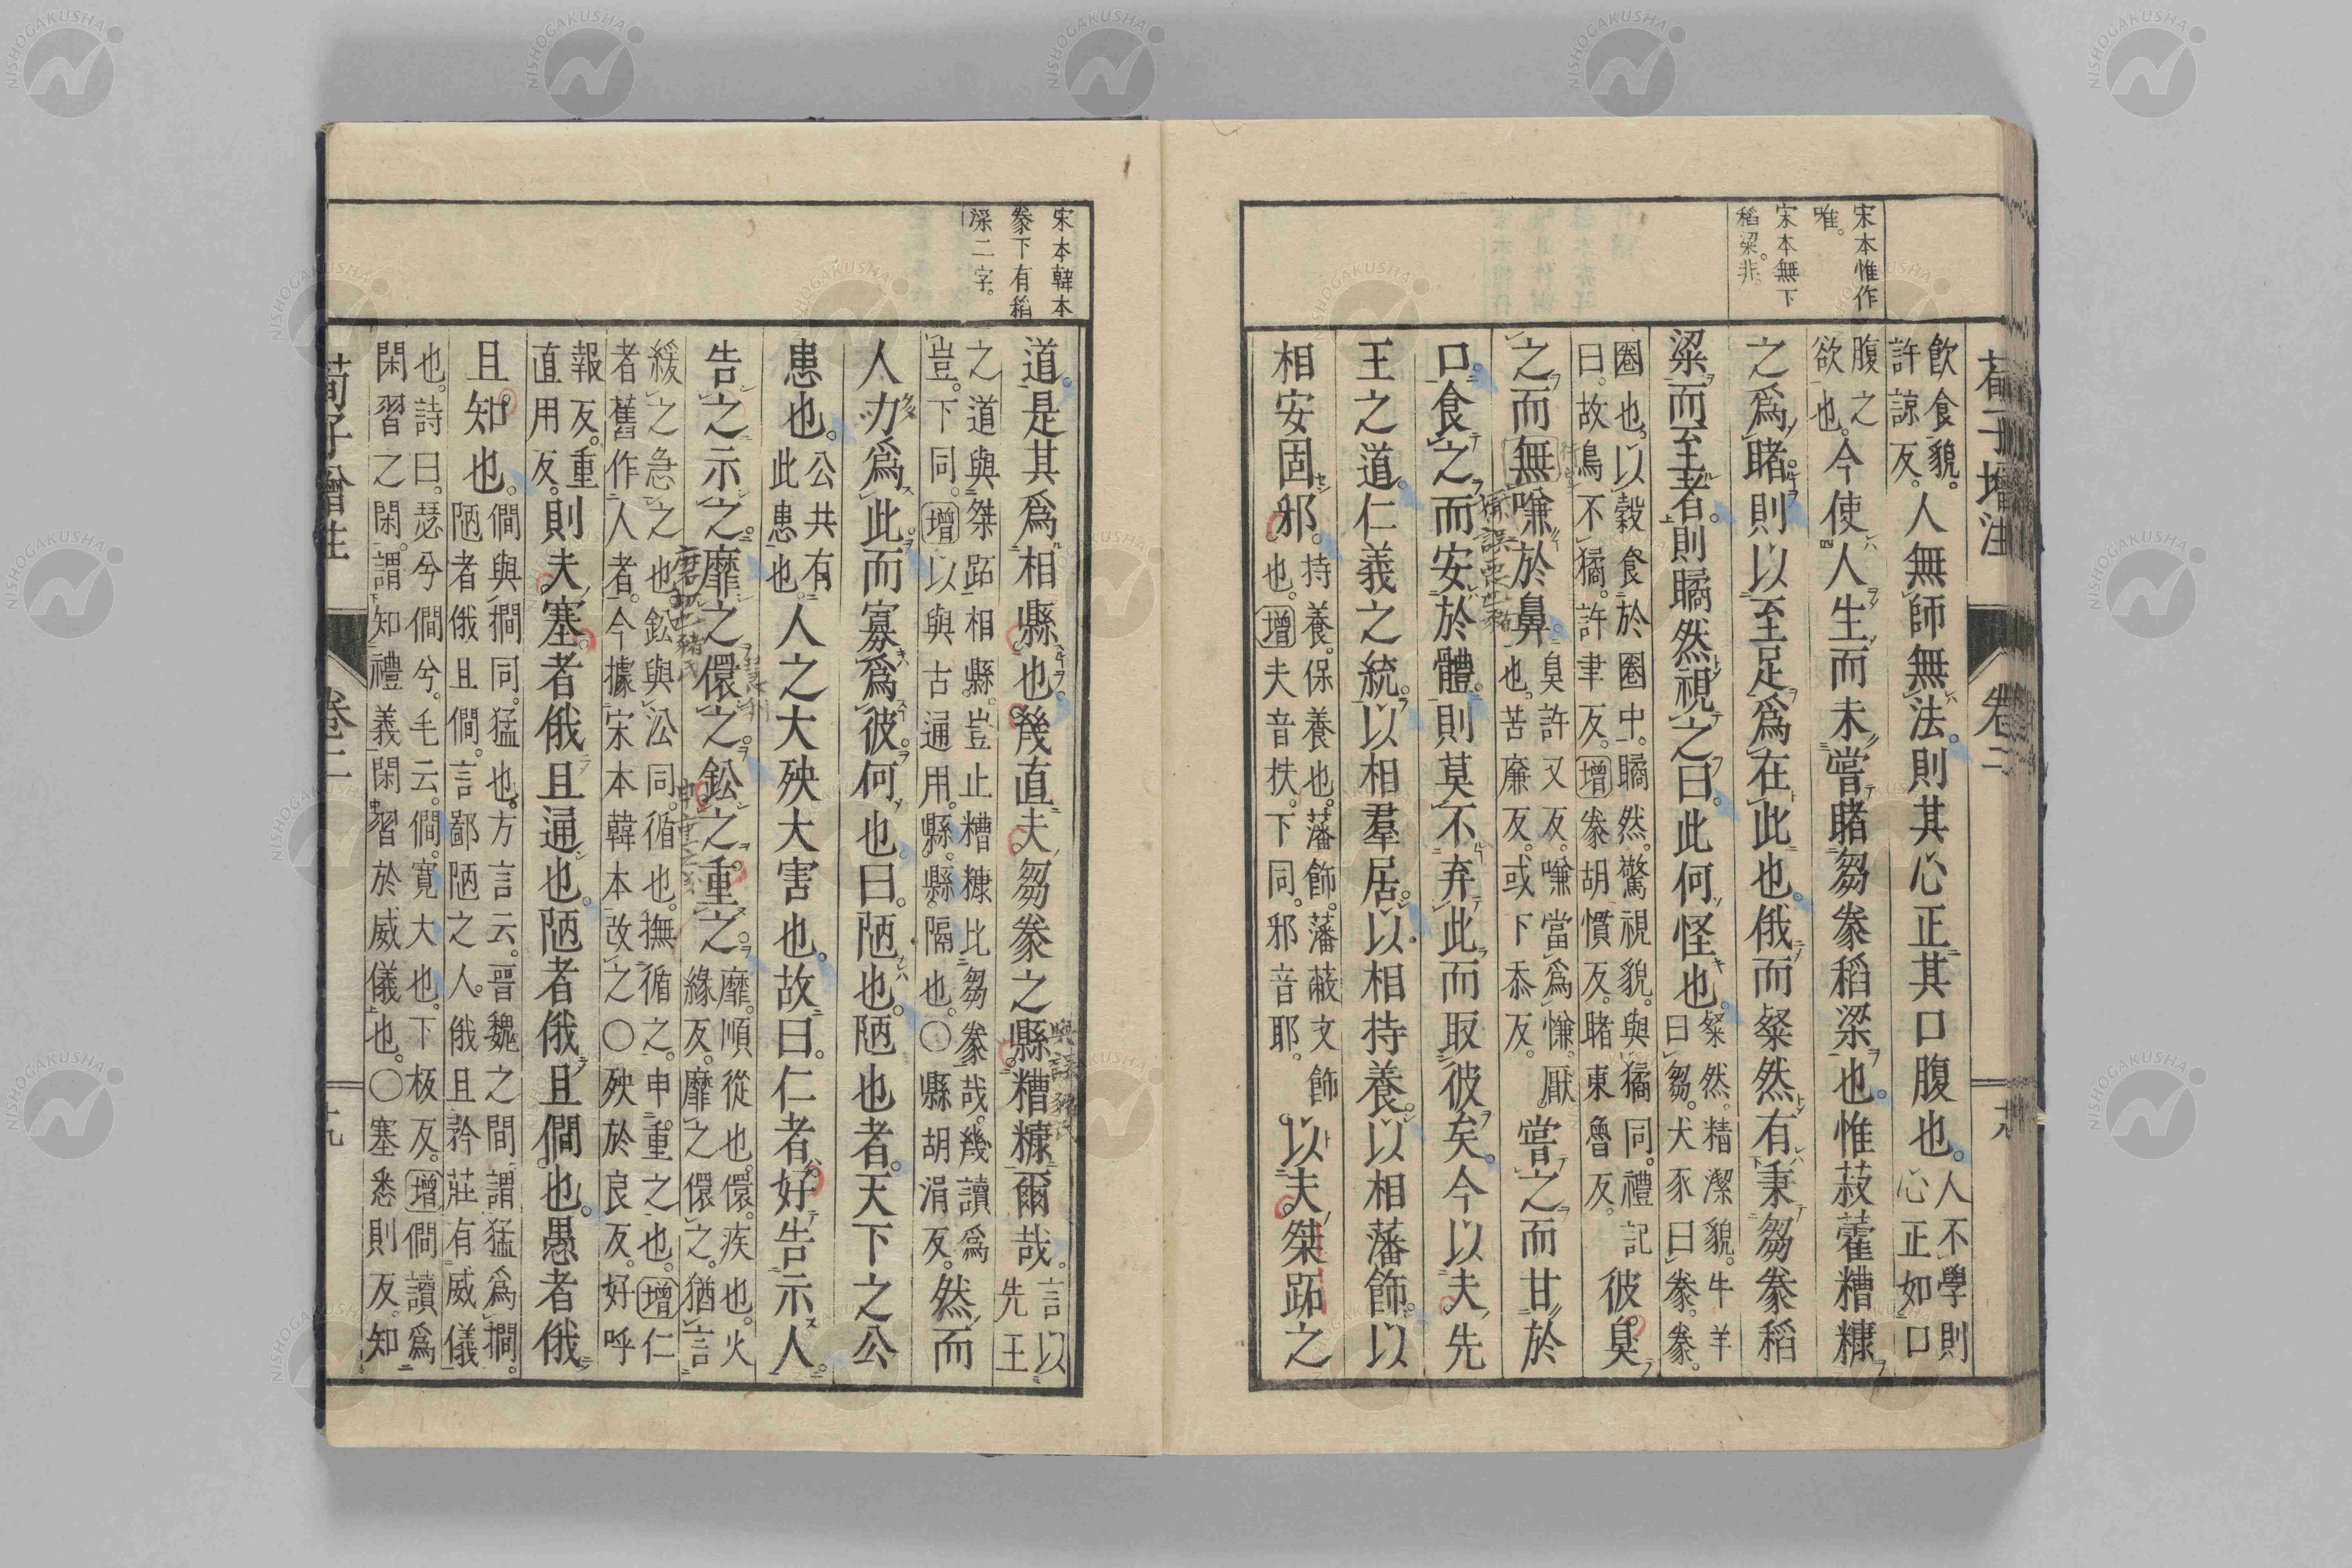 荀子增注
卷二
宋本惟作
唯。
宋本無下
稻梁。非。
飮食貌。許諒反。人無師無法。則其心正其口腹也。人不學則心正如口
腹之欲也。今使人生而未嘗睹芻豢稻梁也。惟菽藿糟糠
之爲睹。則以至足爲在此也。俄而粲然有秉芻豢稻
粱而至者。則瞲然視之曰。此何怪也。粲然。精潔貌。牛羊曰芻。犬豕曰豢。豢。
圈也。以穀食於圈中。瞲然。驚視貌。與獝同。禮記曰。故鳥不獝。許聿反。增豢胡慣反。睹東魯反。彼臭
之而無嗛於鼻。臭許又反。嗛當爲慊。厭也。苦廉反。或下忝反。嘗之而甘於
口。食之而安於體。則莫不弃此而取彼矣。今以夫先
王之道。仁義之統。以相羣居。以相持養。以相藩飾。以
相安固邪。持養。保養也。藩飾。藩蔽文飾也。增夫音扶。下同。邪音耶。以夫桀跖之
宋本韓本
豢下有稻
粱二字。
道。是其爲相縣也。幾直夫芻豢之縣糟糠爾哉。言以先王
之道與桀跖相縣。豈止糟糠比芻豢哉。幾讀爲豈。下同。增以與古通用。縣。縣。隔也。〇縣胡涓反。然而
人力爲此而寡爲彼。何也。曰。陋也。陋也者。天下之公
患也。公共有此患也。人之大殃大害也。故曰。仁者好告示人。
告之示之。靡之儇之。鈆之重之。靡。順從也。儇。疾也。火緣反。靡之儇之。猶言
緩之急之也。鈆與沿同。循也。撫循之。申重之也。增仁者舊作人者。今據宋本韓本改之〇殃於良反。好呼
報反。重直用反。則夫塞者俄且通也。陋者俄且僩也。愚者俄
且知也。僩與撊同。猛也。方言云。晉魏之間謂猛爲撊。陋者俄且僩。言鄙陋之人。俄且矜莊有威儀
也。詩曰。瑟兮僩兮。毛云。僩。寬大也。下板反。增僩讀爲閑習之閑。謂知禮義閑習於威儀也。〇塞悉則反。知
荀子增注
卷二